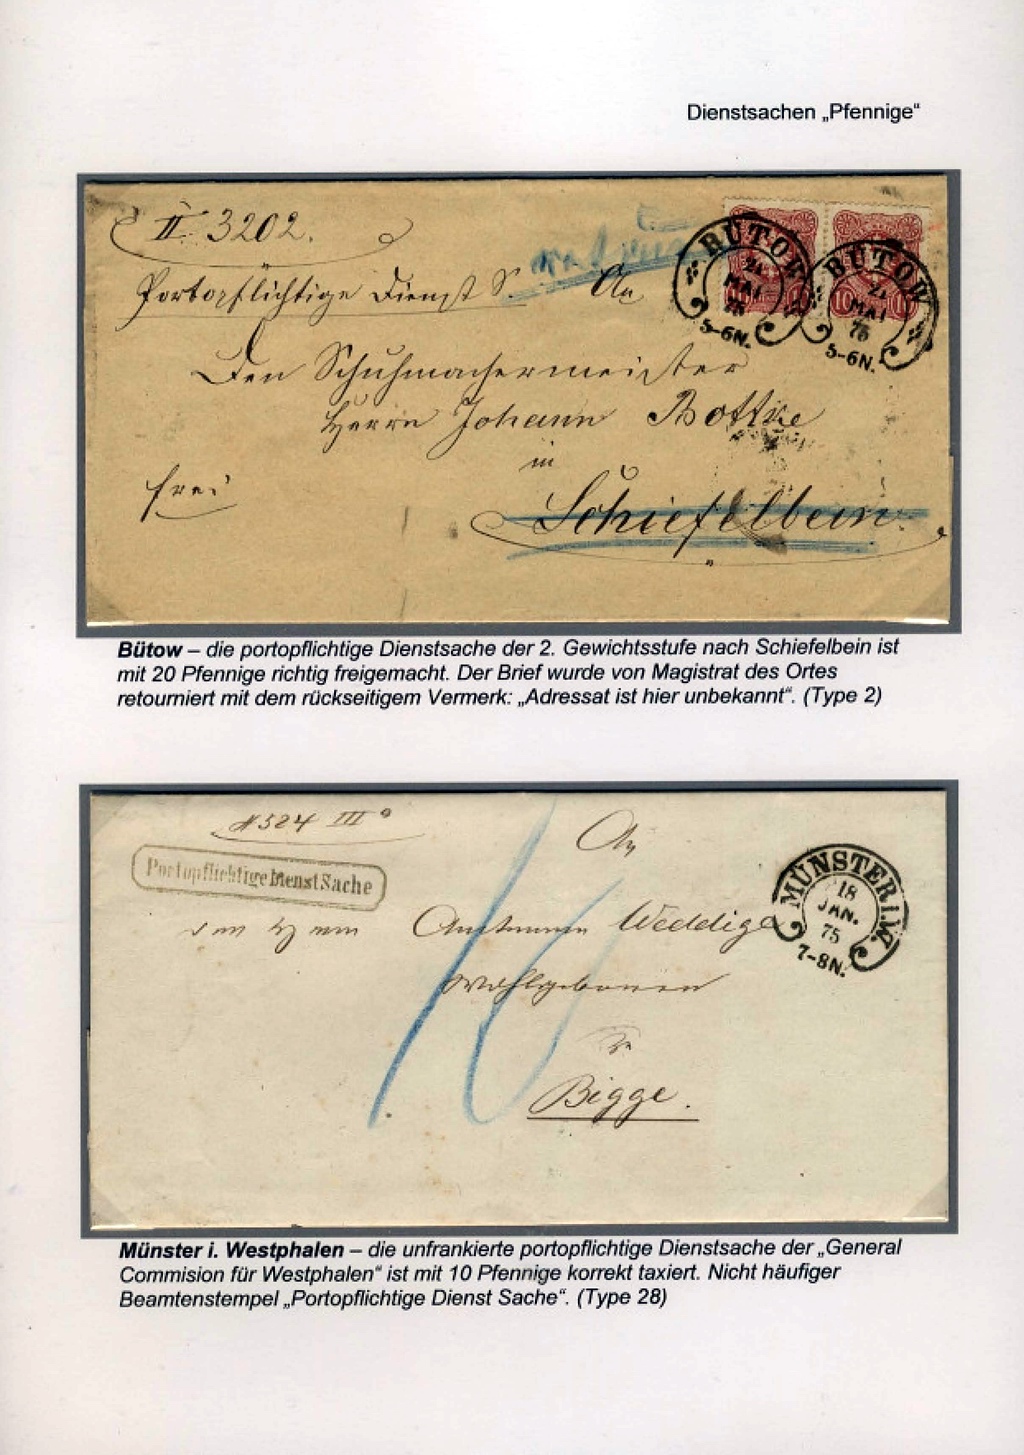 Dienstsachen „Pfennige"
II. 3202.
Portopflichtige Dienst S. An
BÜTOW
21
MAI
75
5-6N.
BÜTOW
21
MAI
75
5-6N.
10
10
Den Schuhmachermeister
Herrn Johann Bottke
in
frei
Schiefelbein.
Bütow – die portopflichtige Dienstsache der 2. Gewichtsstufe nach Schiefelbein ist
mit 20 Pfennige richtig freigemacht. Der Brief wurde von Magistrat des Ortes
retourniert mit dem rückseitigem Vermerk: „Adressat ist hier unbekannt". (Type 2)
#524 III
An
Portopflichtige Dienst Sache
MÜNSTER i.W.
18
JAN.
75
7-8N.
den Herrn Amtmann Weddige
Wohlgeboren
zu
Bigge.
10
Münster i. Westphalen – die unfrankierte portopflichtige Dienstsache der „General
Commision für Westphalen" ist mit 10 Pfennige korrekt taxiert. Nicht häufiger
Beamtenstempel „Portopflichtige Dienst Sache". (Type 28)